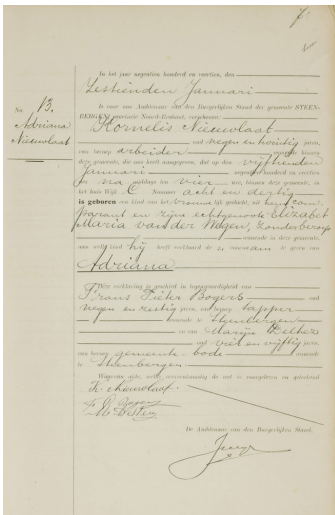 7.
No. 13.
Adriana
Nieuwlaat
In het jaar negentien honderd en veertien, den
zestienden Januari
is voor ons Ambtenaar van den Burgerlijken Stand der gemeente STEEN-
BERGEN, provincie Noord-Brabant, verschenen:
Kornelis Nieuwlaat
oud negen en twintig jaren,
van beroep arbeider wonende binnen
deze gemeente, die ons heeft aangegeven, dat op den vijftienden
Januari negentienhonderd en veertien
des na middags ten vier ure, binnen deze gemeente, in
het huis Wijk C Nummer acht en dertig
is geboren een kind van het vrouwelijk geslacht, uit hem com-
parant en zijne echtgenoote Elizabet
Maria van der Wegen, zonder beroep
wonende in deze gemeente,
aan welk kind hij heeft verklaard de voornaam te geven van
Adriana
Deze verklaring is geschied in tegenwoordigheid van
Frans Pieter Bogers oud
negen en zestig jaren, van beroep tapper
wonende te Steenbergen
en van oud
vier en vijftig jaren,
van beroep gemeente bode wonende
te Steenbergen
Waarvan akte, welke overeenkomstig de wet is voorgelezen en geteekend
K. Nieuwlaat.
De Ambtenaar van den Burgerlijken Stand.